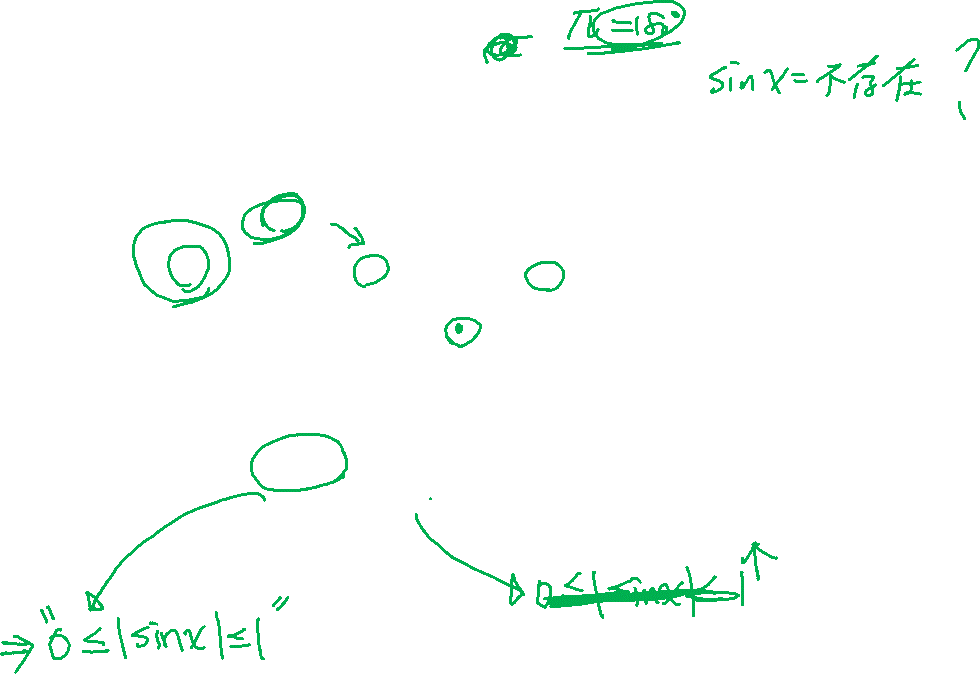 π=180°
sinx=不存在?
0<|sinx|<1
⇒"0≤|sinx|≤1"